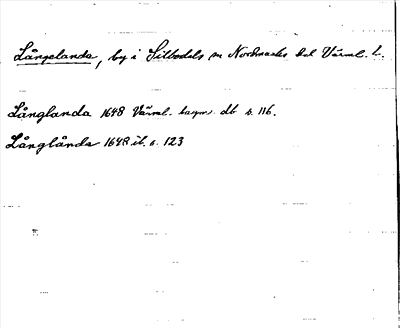 Långelanda, by i Silbodals sn Nordmarks hd Värml. l.
Långlanda 1648 Värml. bergv. db s. 116.
Långlånda 1648 ib. s. 123